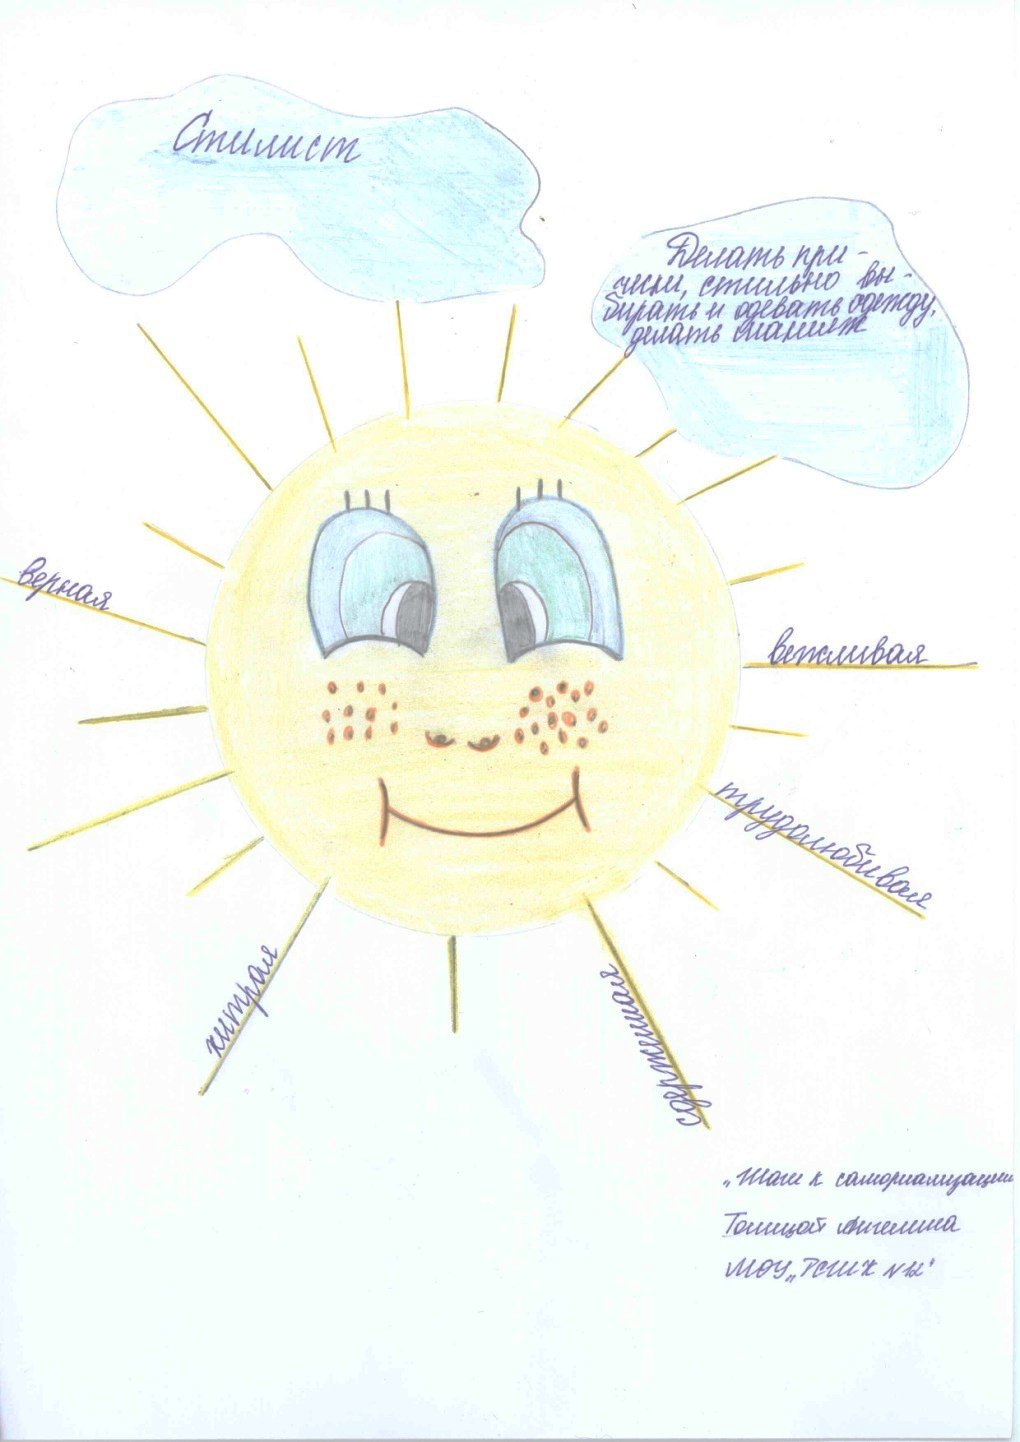 Стилист
Делать при-
чёски, стильно вы-
бирать и одевать одежду,
делать макияж
верная
вежливая
трудолюбивая
хитрая
сдержаная
„Шаги к самореализации
Ангелина
МОУ „РСШК №12"